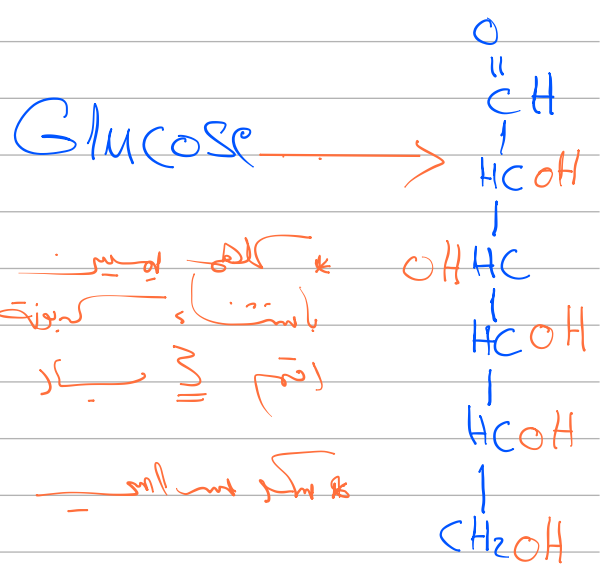 Glucose
O
CH
HCOH
OHHC
HCOH
HCOH
CH2OH
* كلهم يمين
باستثناء كربونة
رقم 3 يسار
* سكر